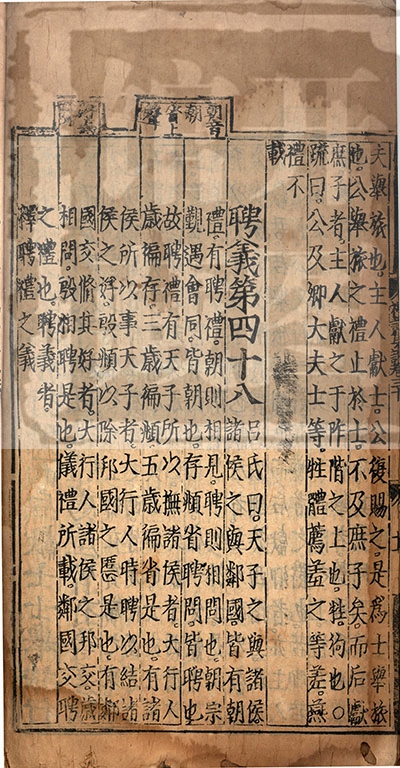 夫舉旅也。主人獻士。公復賜之。是爲士舉旅
也。公舉旅之禮止於士。不及庶子矣。而后獻
庶子者。主人獻之于阼階之上也。牲狗也。○
疏曰。公及卿大夫士等。牲體薦羞之等差。燕
禮不
載
聘義第四十八
呂氏曰。天子之與諸侯。
諸侯之與鄰國。皆有朝
禮。有聘禮。朝則相見。聘則相問也。朝宗
覲遇會同。皆朝也。存頫省聘問。皆聘也
故聘禮有天子所以撫諸侯者。大行人
歲徧存。三歲徧頫。五歲徧省是也。有諸
侯所以事天子者。大行人時聘以結諸
侯之好。殷頫以除邦國之慝是也。有鄰
國交修其好者。大行人諸侯之邦交。歲
相問。殷相聘是也。儀禮所載。鄰國交聘
之禮也。聘義者。
釋聘禮之義